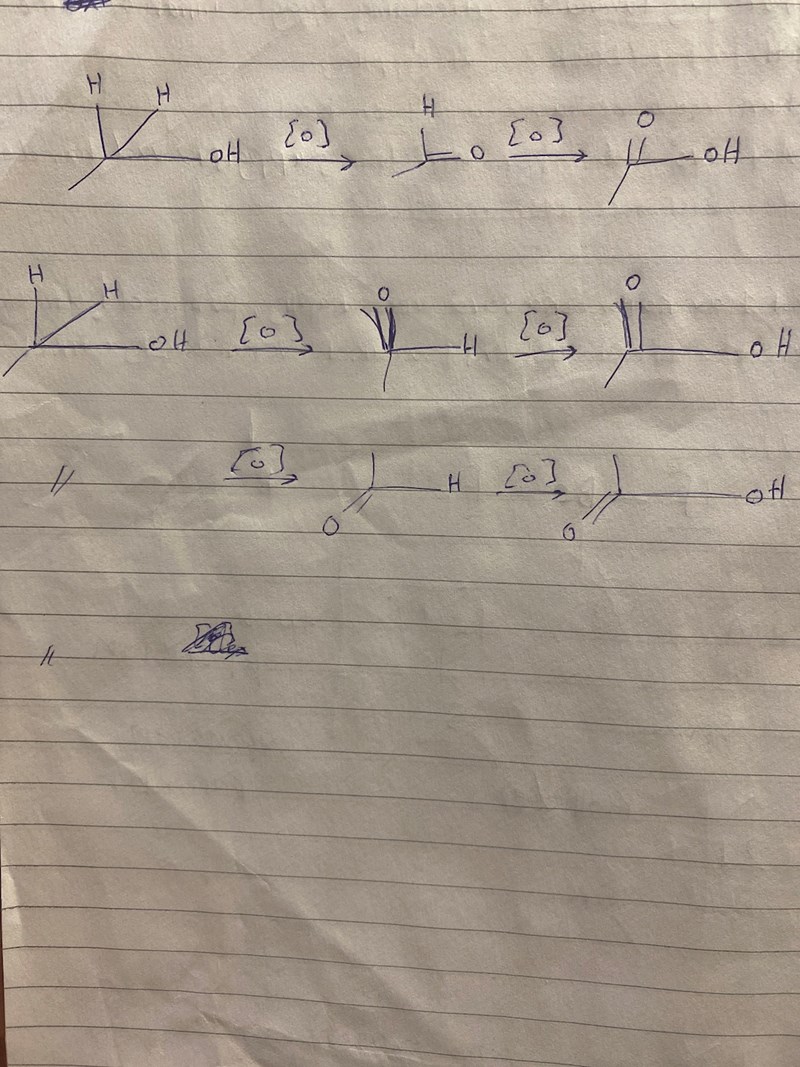 H H
OH [O] → H O [O] → O OH
H H
OH [O] → O H [O] → O OH
〃 [O] → H O [O] → O OH
〃